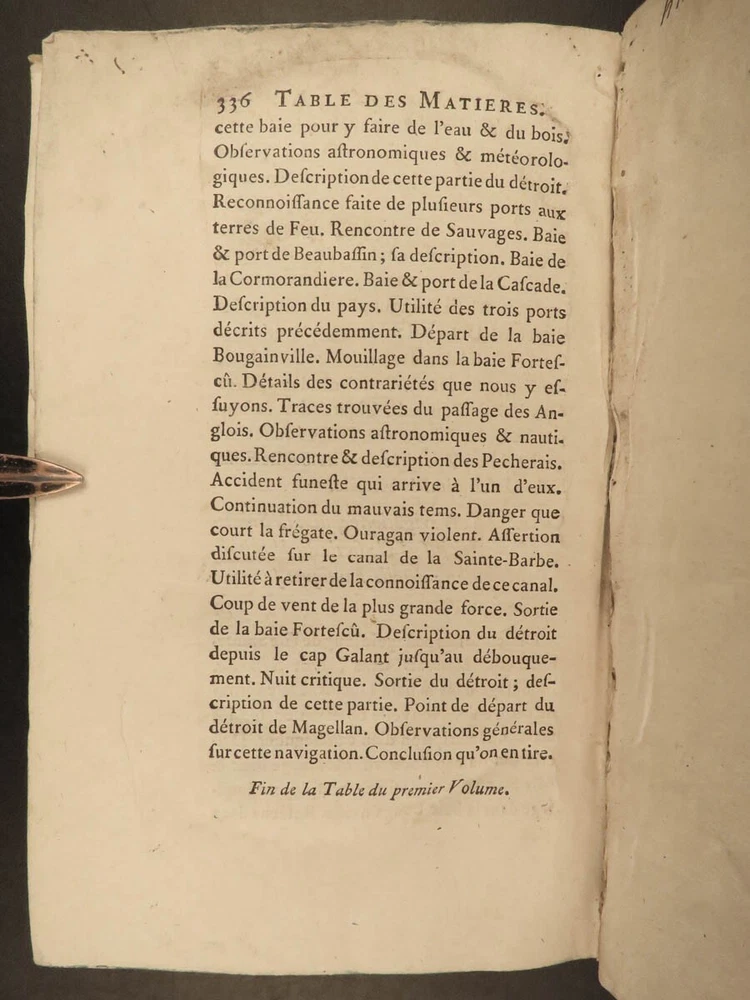 336 TABLE DES MATIERES.
cette baie pour y faire de l'eau & du bois.
Obſervations aſtronomiques & météorolo-
giques. Deſcription de cette partie du détroit.
Reconnoiſſance faite de pluſieurs ports aux
terres de Feu. Rencontre de Sauvages. Baie
& port de Beaubaſſin ; ſa deſcription. Baie de
la Cormorandiere. Baie & port de la Caſcade.
Deſcription du pays. Utilité des trois ports
décrits précédemment. Départ de la baie
Bougainville. Mouillage dans la baie Forteſ-
cû. Détails des contrariétés que nous y eſ-
ſuyons. Traces trouvées du paſſage des An-
glois. Obſervations aſtronomiques & nauti-
ques. Rencontre & deſcription des Pecherais.
Accident funeſte qui arrive à l'un d'eux.
Continuation du mauvais tems. Danger que
court la frégate. Ouragan violent. Aſſertion
diſcutée ſur le canal de la Sainte-Barbe.
Utilité à retirer de la connoiſſance de ce canal.
Coup de vent de la plus grande force. Sortie
de la baie Forteſcû. Deſcription du détroit
depuis le cap Galant juſqu'au débouque-
ment. Nuit critique. Sortie du détroit ; deſ-
cription de cette partie. Point de départ du
détroit de Magellan. Obſervations générales
ſur cette navigation. Concluſion qu'on en tire.
Fin de la Table du premier Volume.